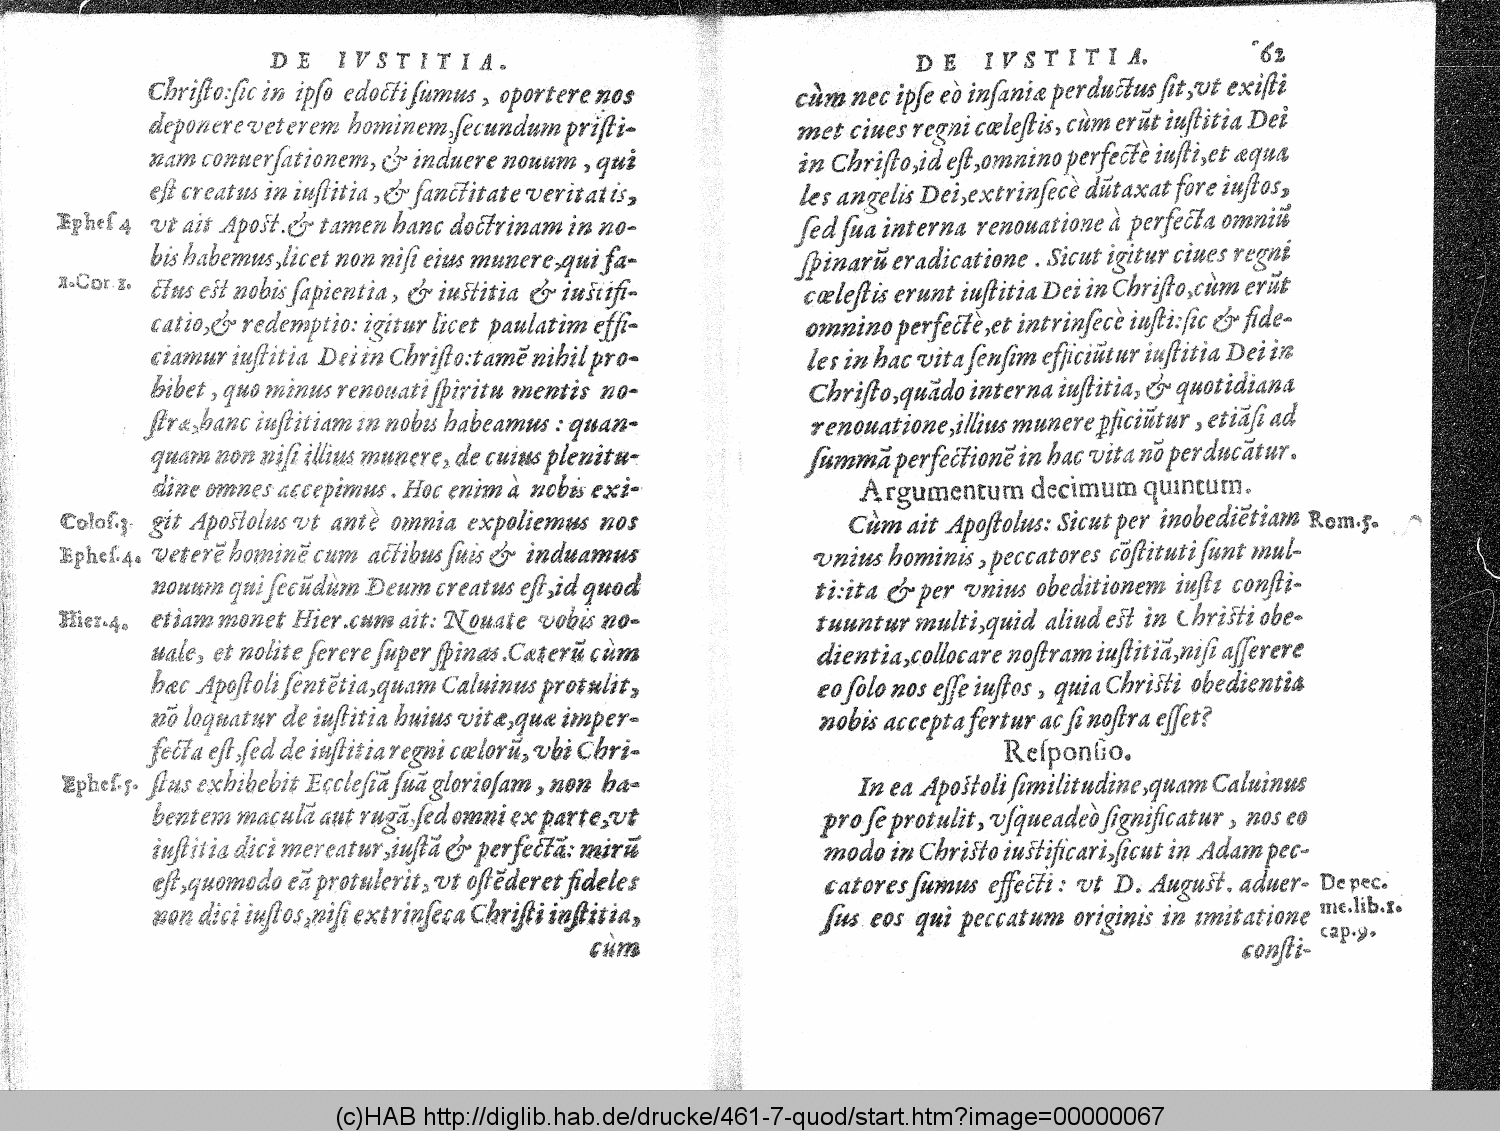 DE IVSTITIA.
Chriſto:ſic in ipſo edocti ſumus, oportere nos
deponere veterem hominem,ſecundum priſti-
nam conuerſationem, & induere nouum, qui
eſt creatus in iuſtitia, & ſanctitate veritatis,
Epheſ 4
vt ait Apoſt. & tamen hanc doctrinam in no-
bis habemus,licet non niſi eius munere,qui fa-
1.Cor 1.
ctus eſt nobis ſapientia, & iuſtitia & iuſtifi-
catio,& redemptio: igitur licet paulatim effi-
ciamur iuſtitia Dei in Chriſto:tamẽ nihil pro-
hibet, quo minus renouati ſpiritu mentis no-
ſtræ,hanc iuſtitiam in nobis habeamus: quan-
quam non niſi illius munere, de cuius plenitu-
dine omnes accepimus. Hoc enim à nobis exi-
Coloſ.3.
git Apoſtolus vt antè omnia expoliemus nos
Epheſ.4.
veterẽ hominẽ cum actibus ſuis & induamus
nouum qui ſecũdùm Deum creatus eſt,id quod
Hier.4.
etiam monet Hier.cum ait: Nouate vobis no-
uale, et nolite ſerere ſuper ſpinas.Cæterũ cùm
hæc Apoſtoli ſentẽtia,quam Caluinus protulit,
nõ loquatur de iuſtitia huius vitæ,quæ imper-
fecta eſt,ſed de iuſtitia regni cœlorũ, vbi Chri-
Epheſ.5.
ſtus exhibebit Eccleſiã ſuã glorioſam, non ha-
bentem maculã aut rugã,ſed omni ex parte,vt
iuſtitia dici mereatur,iuſtã & perfectã: mirũ
eſt,quomodo eã protulerit, vt oſtẽderet fideles
non dici iuſtos,niſi extrinſeca Chriſti iuſtitia,
cùm
DE IVSTITIA.
62
cùm nec ipſe eò inſaniæ perductus ſit,vt exiſti
met ciues regni cœleſtis, cùm erũt iuſtitia Dei
in Chriſto,id eſt,omnino perfectè iuſti,et æqua
les angelis Dei,extrinſecè dũtaxat fore iuſtos,
ſed ſua interna renouatione à perfecta omniũ
ſpinarũ eradicatione. Sicut igitur ciues regni
cœleſtis erunt iuſtitia Dei in Chriſto,cùm erũt
omnino perfectè,et intrinſecè iuſti:ſic & fide-
les in hac vita ſenſim efficiũtur iuſtitia Dei in
Chriſto,quãdo interna iuſtitia, & quotidiana
renouatione,illius munere ꝑficiũtur, etiãſi ad
ſummã perfectionẽ in hac vita nõ perducãtur.
Argumentum decimum quintum.
Cùm ait Apoſtolus: Sicut per inobediẽtiam
Rom.5.
vnius hominis, peccatores cõſtituti ſunt mul-
ti:ita & per vnius obeditionem iuſti conſti-
tuuntur multi,quid aliud eſt in Chriſti obe-
dientia,collocare noſtram iuſtitiã,niſi aſſerere
eo ſolo nos eſſe iuſtos, quia Chriſti obedientia
nobis accepta fertur ac ſi noſtra eſſet?
Reſponſio.
In ea Apoſtoli ſimilitudine,quam Caluinus
pro ſe protulit, vſqueadeò ſignificatur, nos eo
modo in Chriſto iuſtificari,ſicut in Adam pec-
catores ſumus effecti: vt D. Auguſt. aduer-
De pec.
ſus eos qui peccatum originis in imitatione
me.lib.1.
cap.9.
conſti-
(c)HAB http://diglib.hab.de/drucke/461-7-quod/start.htm?image=00000067